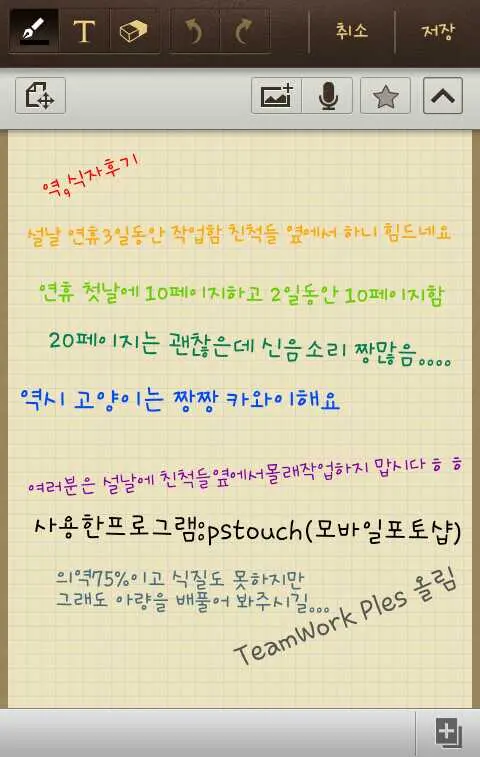 T
취소
저장
역,식자후기
설날 연휴3일동안 작업함 친척들 옆에서 하니 힘드네요
연휴 첫날에 10페이지하고 2일동안 10페이지함
20페이지는 괜찮은데 신음소리 짱많음....
역시 고양이는 짱짱 카와이해요
여러분은 설날에 친척들옆에서몰래작업하지 맙시다ㅎㅎ
사용한프로그램:pstouch(모바일포토샵)
의역75%이고 식질도 못하지만
그래도 아량을 배풀어 봐주시길...
TeamWork Ples 올림